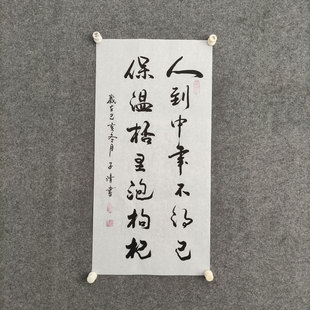 人到中年不得已
保温杯里泡枸杞
岁在己亥冬月子清书